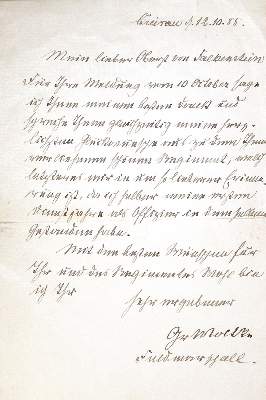 Creisau d. 12.10.88.
Mein lieber Oberst von Falkenstein
Für Ihre Meldung vom 10 October sage
ich Ihnen meinen besten Dank und
spreche Ihnen gleichzeitig meine herz-
lichsten Glückwünsche aus zu dem Ihnen
verliehenen schönen Regiment, welch
letzteres mir in um so lieberer Erinne-
rung ist, da ich selber meine ersten
Dienstjahre als Offizier in demselben
gestanden habe.
Mit den besten Wünschen für
Ihr und des Regimentes Wohl bin
ich Ihr
sehr ergebener
Gr Moltke
Feldmarschall.